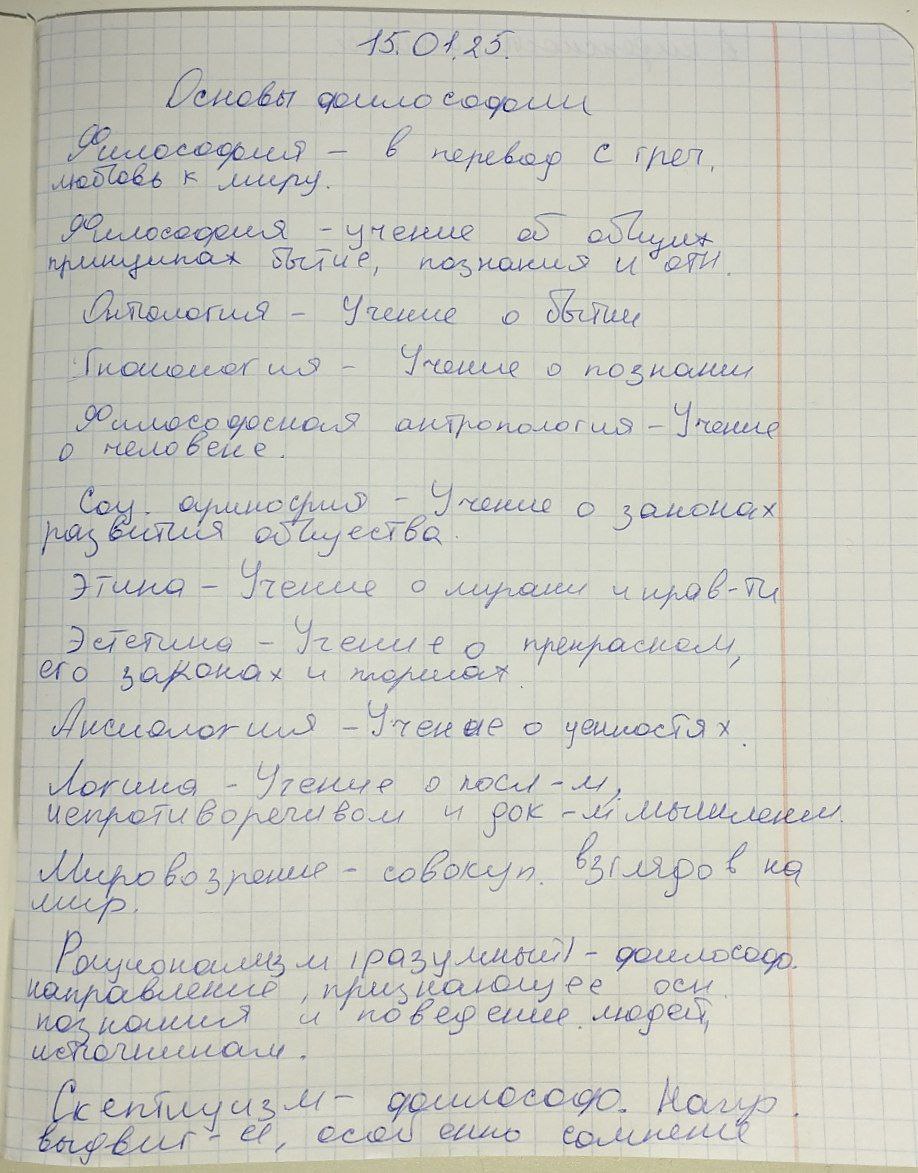 15.01.25.
Основы философии
Философия – в перевод с греч.
любовь к миру.
Философия – учение об общих
принципах бытие, познания и отн.
Онтология – Учение о бытии
Гносиология – Учение о познании
Философсная антропология – Учение
о человеке.
Соц. философия – Учение о законах
развития общества.
Этика – Учение о морали и нрав-ти
Эстетика – Учение о прекрасном,
его законах и нормах.
Аксиология – Учение о ценностях.
Логика – Учение о посл-м,
непротиворечивом и док-м мышлении.
Мировозрение – совокуп. взглядов на
мир.
Рационализм (разумный) – философ.
направление, признающее осн.
познания и поведение людей,
источникам.
Скептицизм – философ. Напр.
выдвиг-й, особенно сомнение